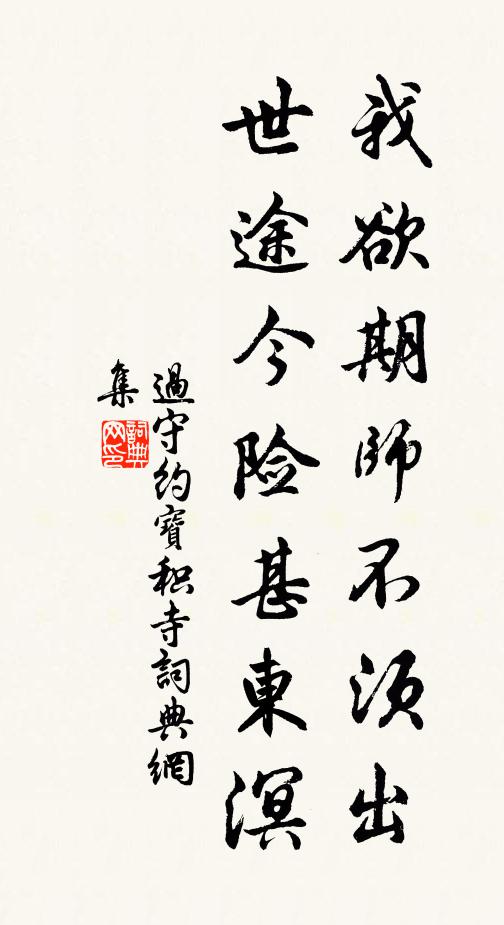 我欲期師不须出
世途今险甚東溟
過守約寶积寺詞典網
集
詞典
网印